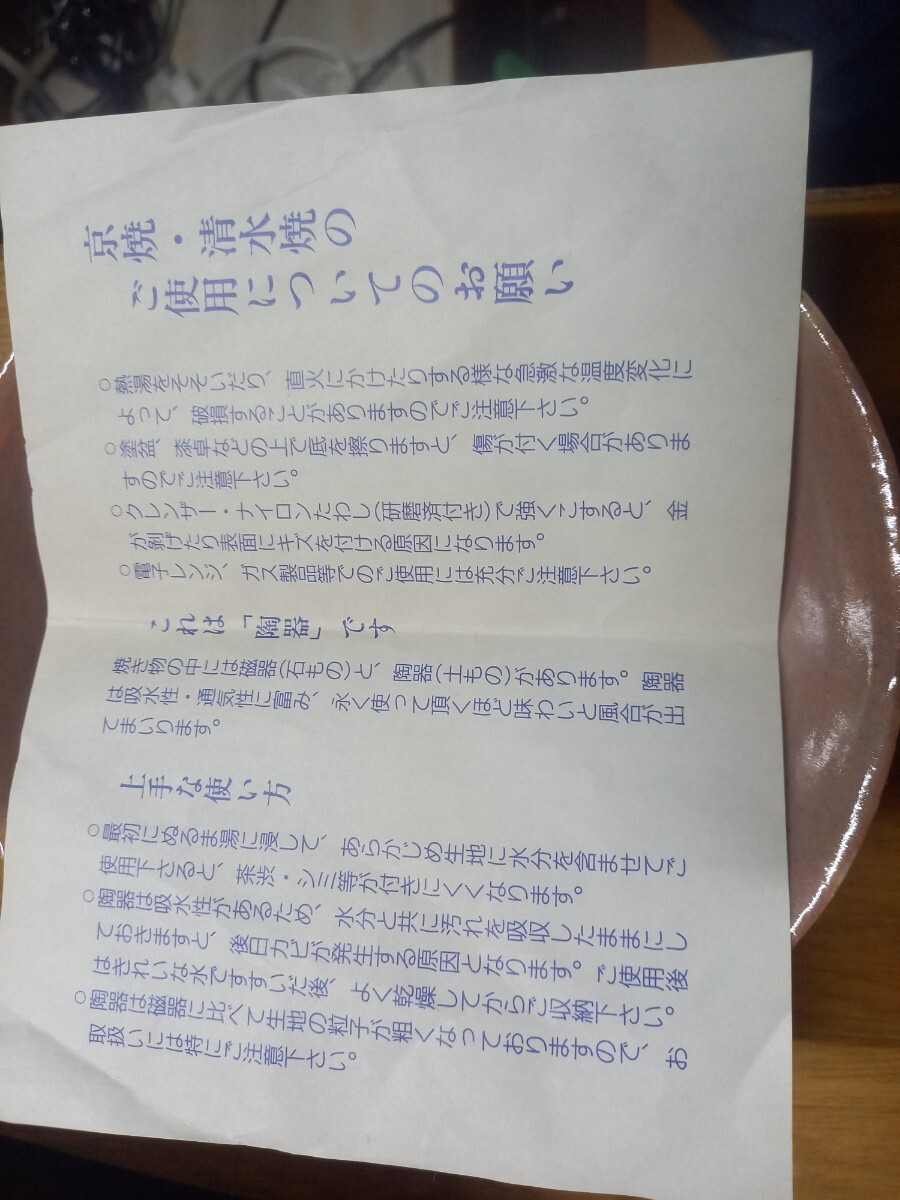 京焼・清水焼の
ご使用についてのお願い
○熱湯をそそいだり、直火にかけたりする様な急激な温度変化に
よって、破損することがありますのでご注意下さい。
○塗盆、漆卓などの上で底を擦りますと、傷が付く場合がありま
すのでご注意下さい。
○クレンザー・ナイロンたわし(研磨済付き)で強くこすると、金
が剥げたり表面にキズを付ける原因になります。
○電子レンジ、ガス製品等でのご使用には充分ご注意下さい。
これは「陶器」です
焼き物の中には磁器(石もの)と、陶器(土もの)があります。陶器
は吸水性・通気性に富み、永く使って頂くほど味わいと風合が出
てまいります。
上手な使い方
○最初にぬるま湯に浸して、あらかじめ生地に水分を含ませてご
使用下さると、茶渋・シミ等が付きにくくなります。
○陶器は吸水性があるため、水分と共に汚れを吸収したままにし
ておきますと、後日カビが発生する原因となります。ご使用後
はきれいな水ですすいだ後、よく乾燥してからご収納下さい。
○陶器は磁器に比べて生地の粒子が粗くなっておりますので、お
取扱いには特にご注意下さい。